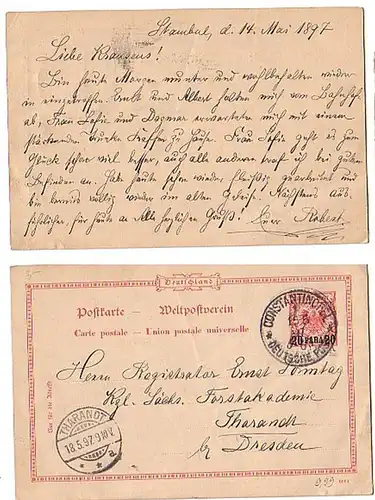 Stambul, d. 14. Mai 1897
Liebe Krausens!
Bin heute Morgen munter und wohlbehalten wieder
in eingetroffen. und Albert holten mich vom Bahnhof
ab, Frau Sofie und Dagmar erwarteten mich mit einem
Kaffee zu Hause. Frau Sofie geht es zum
Glück schon viel besser, auch alle anderen traf ich bei gutem
Befinden an. Habe heute schon wieder fleißig gearbeitet und
bin bereits völlig wieder im alten Geleise. Nächstens aus-
führlicher, für heute an Alle herzlichen Gruß! Euer Robert
Deutschland
Postkarte — Weltpostverein
Carte postale — Union postale universelle
CONSTANTINOPEL
DEUTSCHE POST
20 PARA 20
Nur für die Adresse
Herrn Registrator Ernst Sonntag
Kgl. Sächs. Forstakademie
Tharandt
b/ Dresden
THARANDT
18.5.97